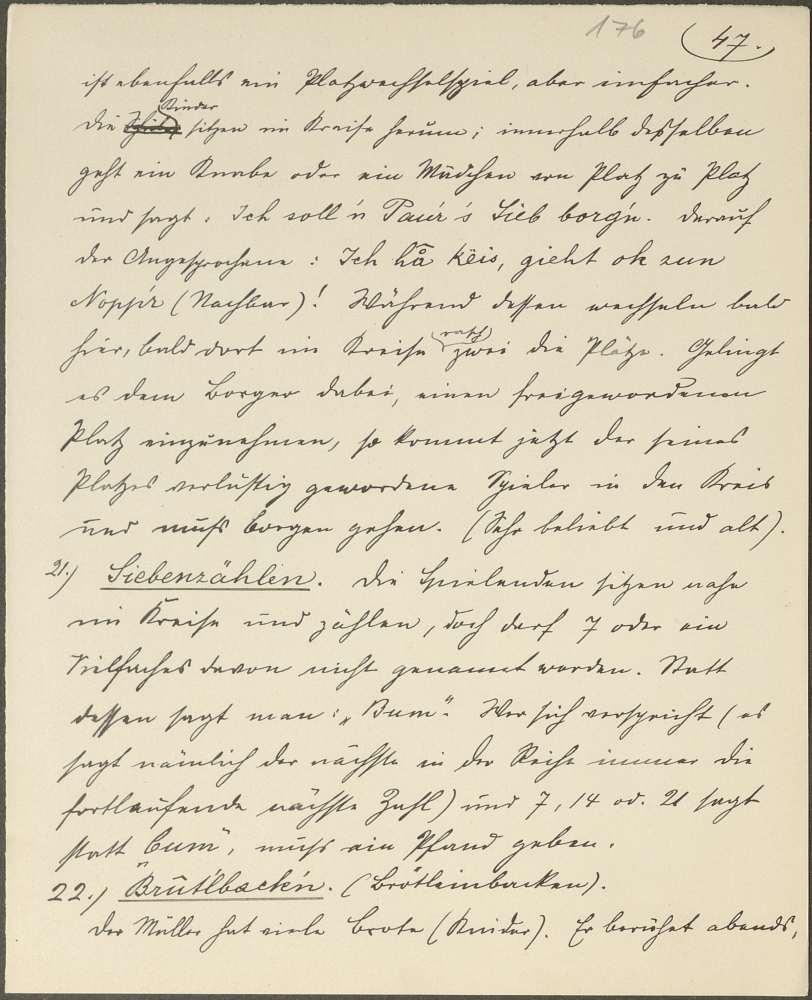 176
47.
ist ebenfalls ein Platzwechselspiel, aber einfacher.
Die Kinder sitzen im Kreise herum; innerhalb desselben
geht ein Knabe oder ein Mädchen von Platz zu Platz
und sagt: Ich soll'n Pauer's Sieb borg'n. Darauf
der Angesprochene: Ich hå keis, gieht ok zun
Noppr (Nachbar)! Während dessen wechseln bald
hier, bald dort im Kreise rasch zwei die Plätze. Gelingt
es dem Borger dabei, einen freigewordenen
Platz einzunehmen, so kommt jetzt der seines
Platzes verlustig gewordene Spieler in den Kreis
und muß borgen gehen. (Sehr beliebt und alt).
21.) Siebenzählen. Die Spielenden sitzen nahe
im Kreise und zählen, doch darf 7 oder ein
Vielfaches davon nicht genannt werden. Statt
dessen sagt man: „Bum". Wer sich verspricht (es
sagt nämlich der nächste in der Reihe immer die
fortlaufende nächste Zahl) und 7, 14 od. 21 sagt
statt „bum", muß ein Pfand geben.
22.) Brûtlbackn. (Brötleinbacken).
Der Müller hat viele Brote (Kinder). Er berühet abends,